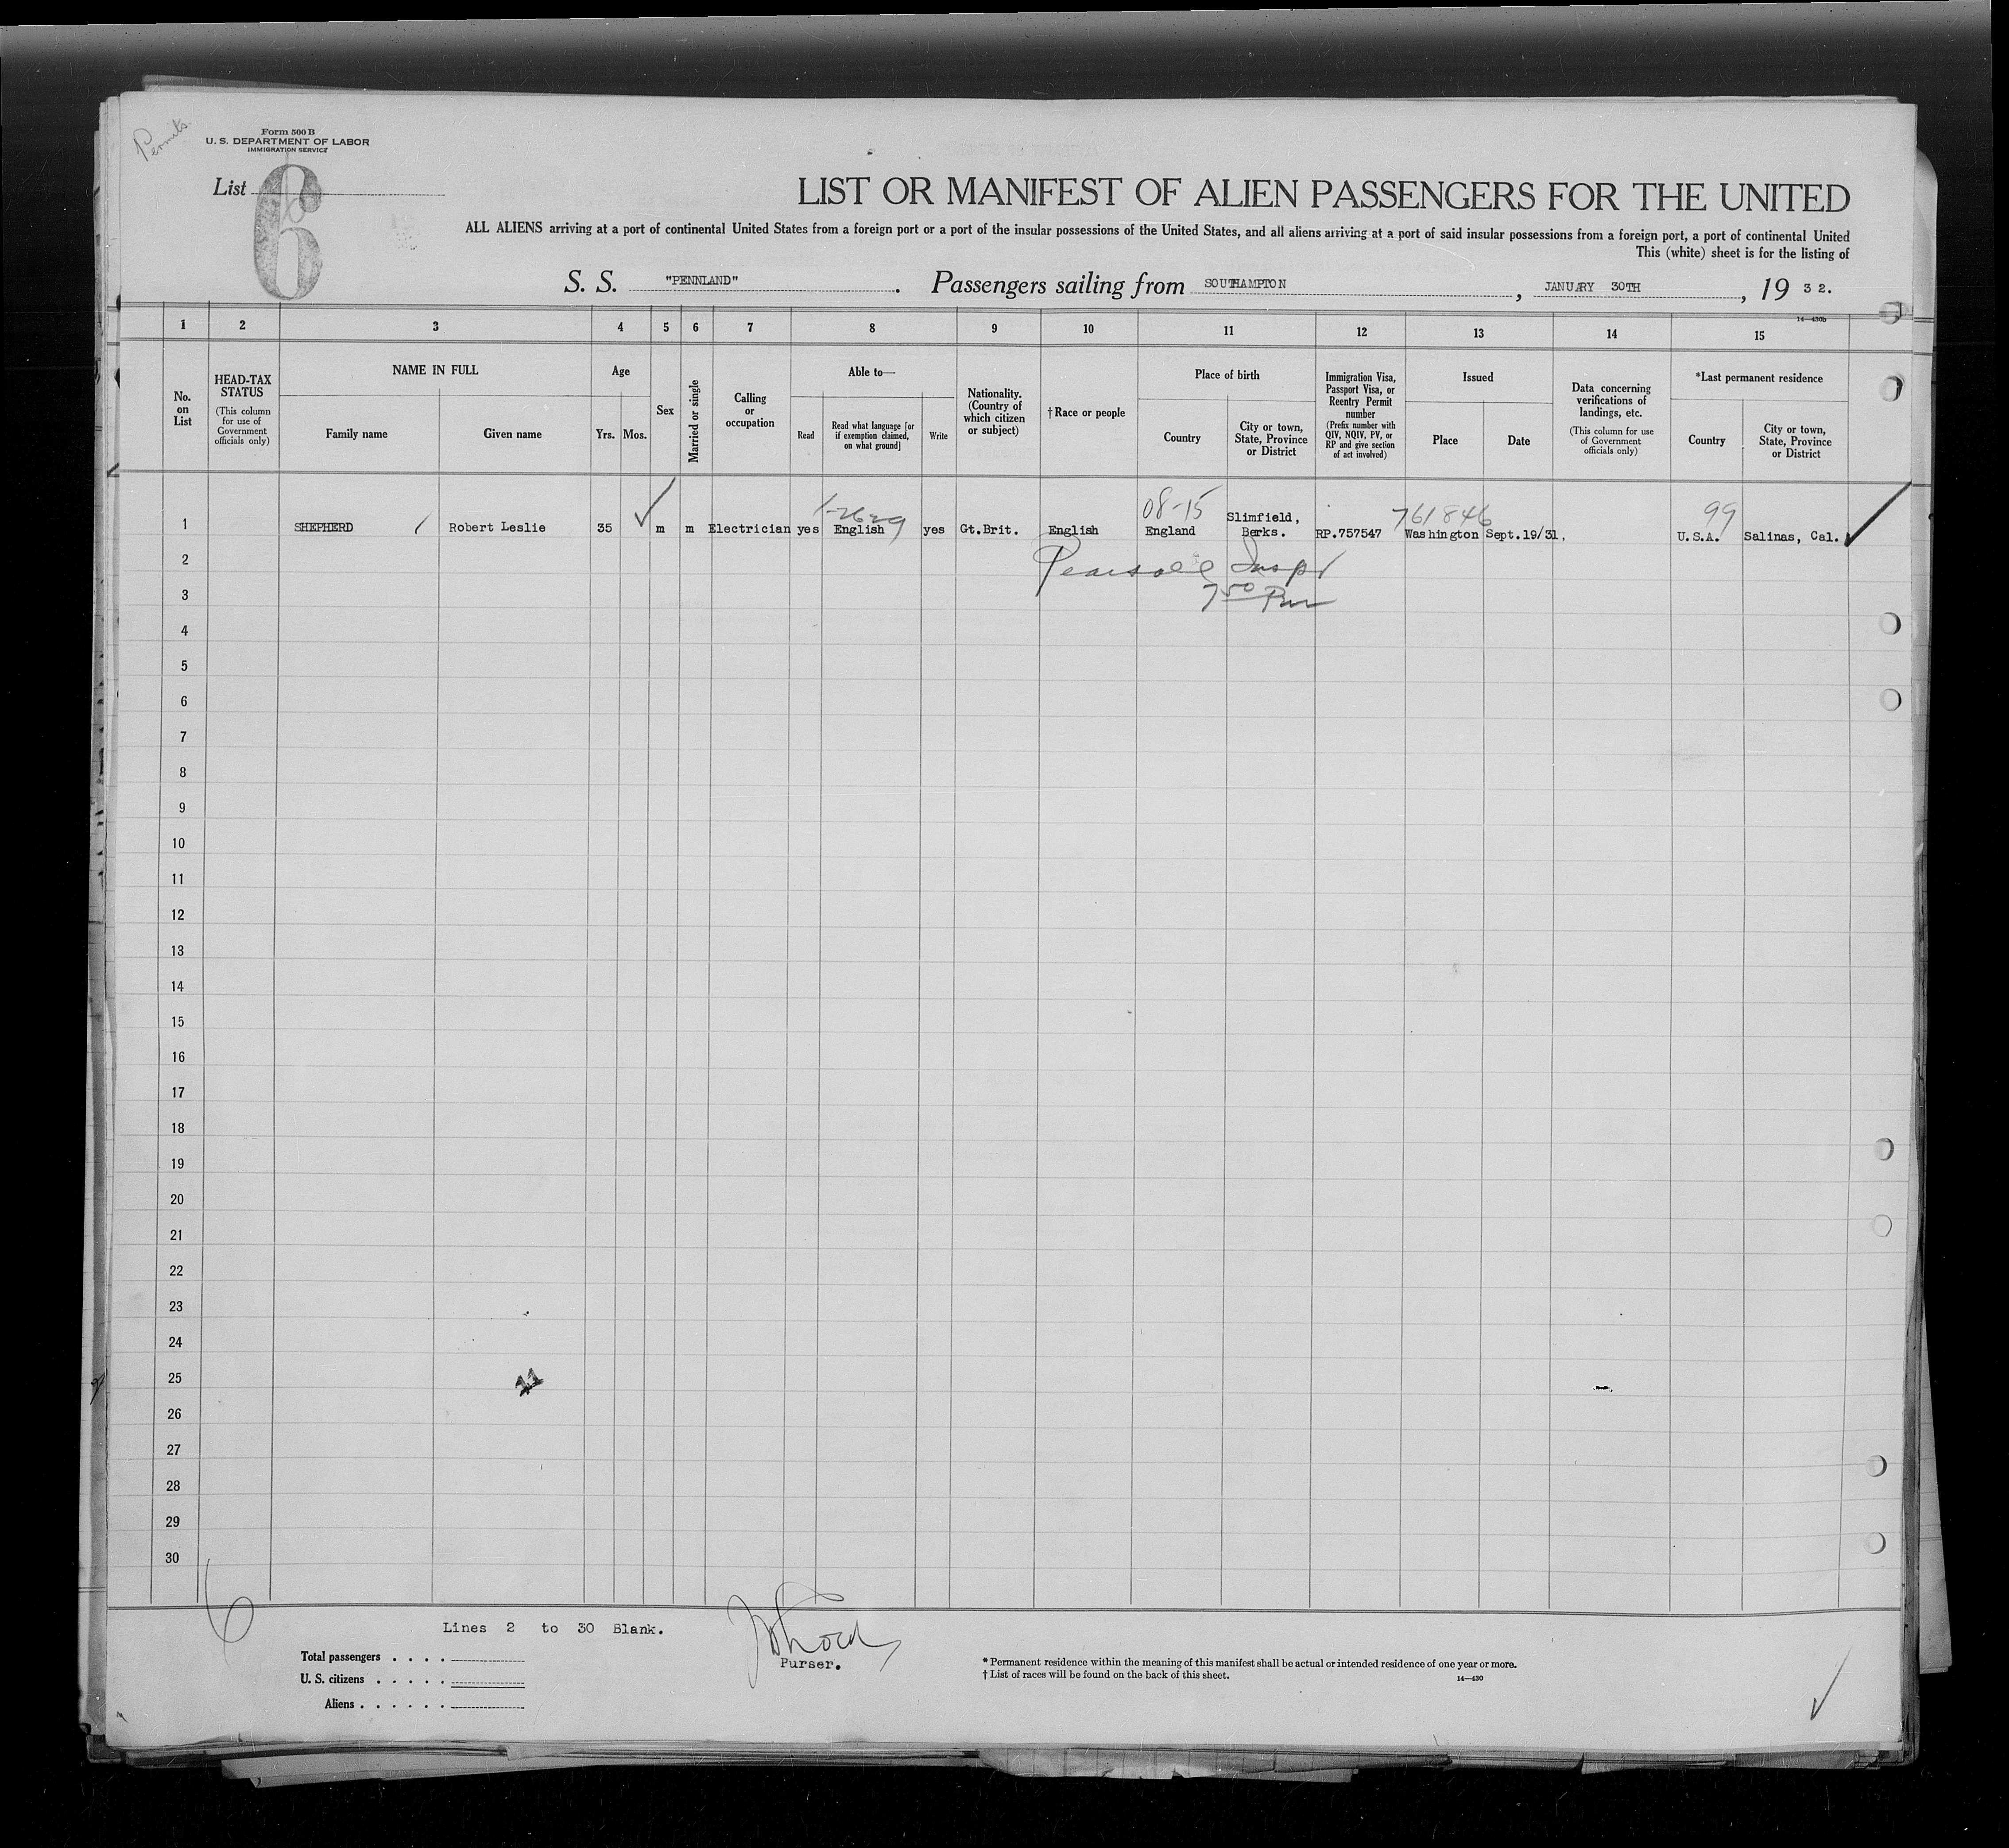 Permits.
Form 500 B
U. S. DEPARTMENT OF LABOR
IMMIGRATION SERVICE
List 6
LIST OR MANIFEST OF ALIEN PASSENGERS FOR THE UNITED
ALL ALIENS arriving at a port of continental United States from a foreign port or a port of the insular possessions of the United States, and all aliens arriving at a port of said insular possessions from a foreign port, a port of continental United
This (white) sheet is for the listing of
S. S. "PENNLAND". Passengers sailing from SOUTHAMPTON, JANUARY 30TH, 19 3 2.
14—430b
1 2 3 4 5 6 7 8 9 10 11 12 13 14 15
No. on List
HEAD-TAX STATUS
(This column for use of Government officials only)
NAME IN FULL
Family name Given name
Age
Yrs. Mos.
Sex
Married or single
Calling or occupation
Able to—
Read
Read what language [or if exemption claimed, on what ground]
Write
Nationality. (Country of which citizen or subject)
†Race or people
Place of birth
Country
City or town, State, Province or District
Immigration Visa, Passport Visa, or Reentry Permit number
(Prefix number with QIV, NQIV, PV, or RP and give section of act involved)
Issued
Place Date
Data concerning verifications of landings, etc.
(This column for use of Government officials only)
*Last permanent residence
Country
City or town, State, Province or District
08-15 761846 99
1 SHEPHERD Robert Leslie 35 m m Electrician yes English yes Gt.Brit. English England Slimfield, Berks. RP.757547 Washington Sept.19/31, U.S.A. Salinas, Cal.
2
3 7 50 Pm
4
5
6
7
8
9
10
11
12
13
14
15
16
17
18
19
20
21
22
23
24
25
26
27
28
29
30
6
Lines 2 to 30 Blank.
Purser.
Total passengers . . . .
U. S. citizens . . . . .
Aliens . . . . . .
* Permanent residence within the meaning of this manifest shall be actual or intended residence of one year or more.
† List of races will be found on the back of this sheet.
14—430